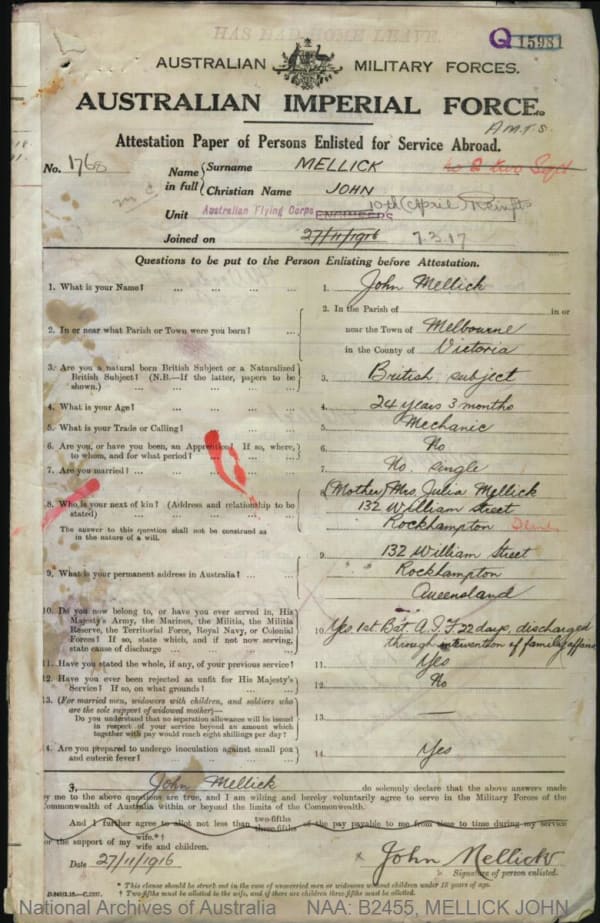 HAS HAD HOME LEAVE.
Q 15981
AUSTRALIAN MILITARY FORCES.
AUSTRALIAN IMPERIAL FORCE.
A.M.T.S.
Attestation Paper of Persons Enlisted for Service Abroad.
No. 1768
Name in full { Surname MELLICK
Christian Name JOHN
Unit Australian Flying Corps ENGINEERS 10th (April) Reinfts
Joined on 27/11/1916 7.3.17
Questions to be put to the Person Enlisting before Attestation.
1. What is your Name? ... ... ... ... 1. John Mellick
2. In or near what Parish or Town were you born? ... 2. In the Parish of in or
near the Town of Melbourne
in the County of Victoria
3. Are you a natural born British Subject or a Naturalized
British Subject? (N.B.—If the latter, papers to be
shown.) ... ... ... ... 3. British subject
4. What is your Age? ... ... ... ... 4. 24 years 3 months
5. What is your Trade or Calling? ... ... ... 5. Mechanic
6. Are you, or have you been, an Apprentice? If so, where,
to whom, and for what period? ... ... ... 6. No
7. Are you married? ... ... ... ... 7. No. single
8. Who is your next of kin? (Address and relationship to be
stated) ... ... ... ... 8. (Mother) Mrs. Julia Mellick
132 William street
Rockhampton
The answer to this question shall not be construed as
in the nature of a will.
9. What is your permanent address in Australia? ... ... 9. 132 William Street
Rockhampton
Queensland
10. Do you now belong to, or have you ever served in, His
Majesty's Army, the Marines, the Militia, the Militia
Reserve, the Territorial Force, Royal Navy, or Colonial
Forces? If so, state which, and if not now serving,
state cause of discharge ... ... ... 10. Yes 1st. Bat. A.I.F. 22 days, discharged
through intervention of family affairs
11. Have you stated the whole, if any, of your previous service? 11. Yes
12. Have you ever been rejected as unfit for His Majesty's
Service? If so, on what grounds? ... ... 12. No
13. (For married men, widowers with children, and soldiers who
are the sole support of widowed mother)—
Do you understand that no separation allowance will be issued
in respect of your service beyond an amount which
together with pay would reach eight shillings per day? 13. —
14. Are you prepared to undergo inoculation against small pox
and enteric fever? ... ... ... ... 14. Yes
I, John Mellick do solemnly declare that the above answers made
by me to the above questions are true, and I am willing and hereby voluntarily agree to serve in the Military Forces of the
Commonwealth of Australia within or beyond the limits of the Commonwealth.
And I further agree to allot not less than two-fifths three-fifths of the pay payable to me from time to time during my service
for the support of my wife.*†
wife and children.
Date 27/11/1916 John Mellick
Signature of person enlisted.
* This clause should be struck out in the case of unmarried men or widowers without children under 18 years of age.
† Two-fifths must be allotted to the wife, and if there are children three-fifths must be allotted.
National Archives of Australia NAA: B2455, MELLICK JOHN